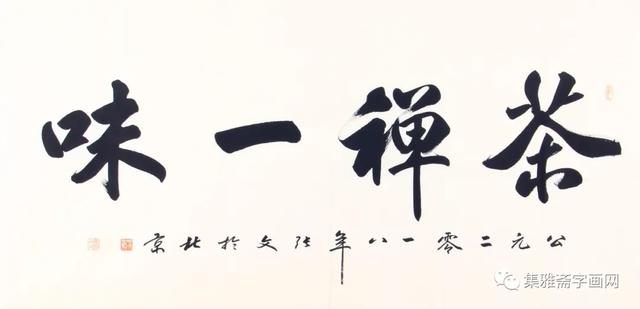 茶禅一味
公元二零一八年张文於北京
集雅斋字画网